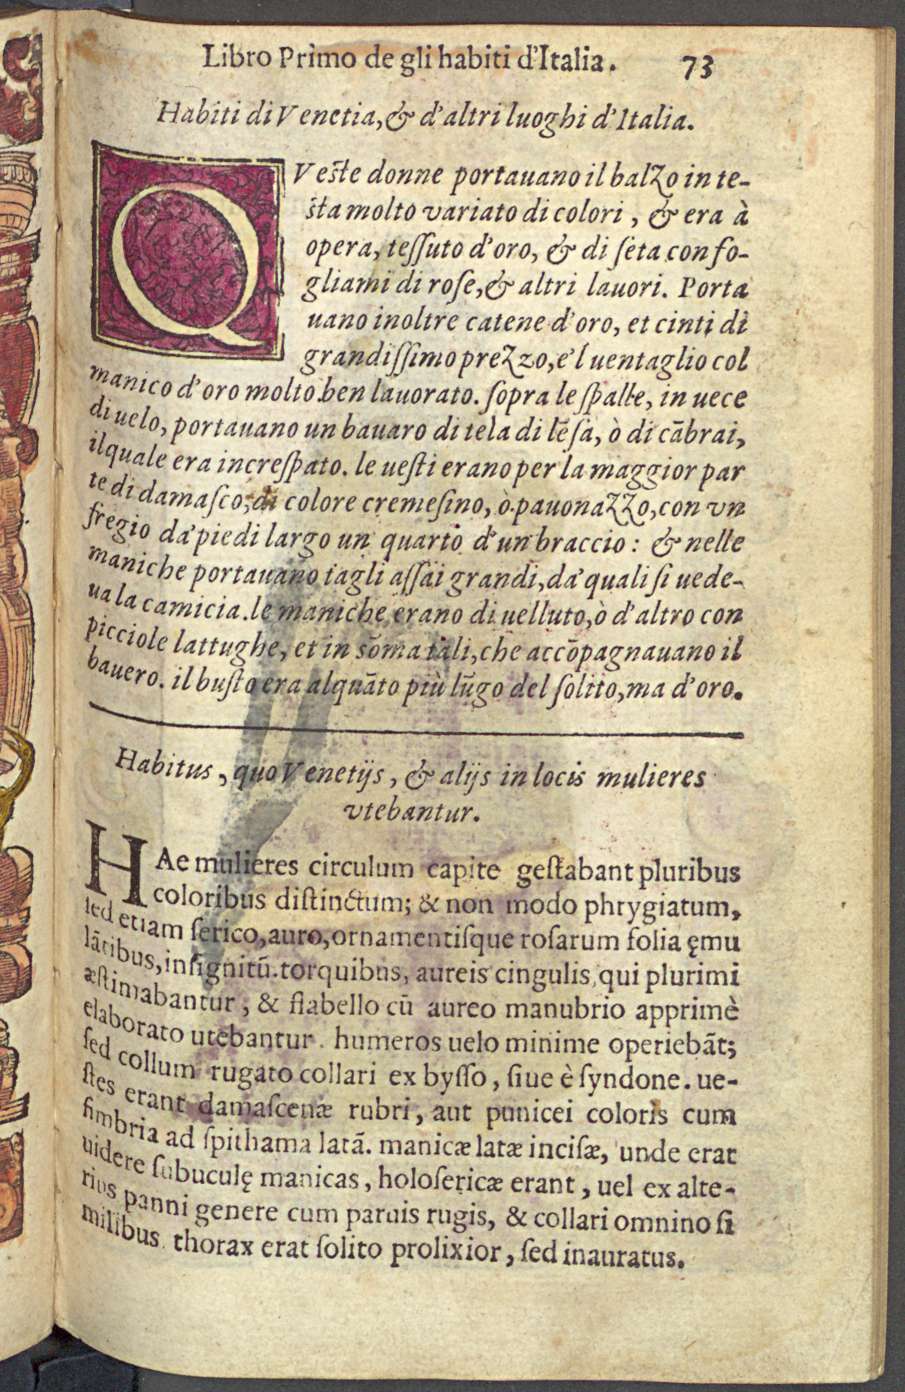 Libro Primo de gli habiti d'Italia. 73
Habiti di Venetia, & d'altri luoghi d'Italia.
QVeste donne portauano il balzo in te-
sta molto variato di colori, & era à
opera, tessuto d'oro, & di seta con fo-
gliami di rose, & altri lauori. Porta
uano inoltre catene d'oro, et cinti di
grandissimo prezzo, e'l uentaglio col
manico d'oro molto ben lauorato. sopra le spalle, in uece
di uelo, portauano un bauaro di tela di lẽsa, ò di cãbrai,
ilquale era increspato. le uesti erano per la maggior par
te di damasco, di colore cremesino, ò pauonazzo, con vn
fregio da' piedi largo un quarto d'un braccio: & nelle
maniche portauano tagli assai grandi, da' quali si uede-
ua la camicia. le maniche erano di uelluto, ò d'altro con
picciole lattughe, et in sõma tali, che accõpagnauano il
bauero. il busto era alquãto più lũgo del solito, ma d'oro.
Habitus, quo Venetijs, & alijs in locis mulieres
vtebantur.
HAe mulieres circulum capite gestabant pluribus
coloribus distinctum; & non modo phrygiatum,
sed etiam serico, auro, ornamentisque rosarum folia ęmu
lãtibus, insignitũ. torquibus, aureis cingulis, qui plurimi
æstimabantur, & flabello cũ aureo manubrio apprimè
elaborato utebantur. humeros uelo minime operiebãt;
sed collum rugato collari ex bysso, siue è syndone. ue-
stes erant damascenæ rubri, aut punicei coloris cum
fimbria ad spithama latã. manicæ latæ incisæ, unde erat
uidere subuculę manicas, holosericæ erant, uel ex alte-
rius panni genere cum paruis rugis, & collari omnino si
milibus. thorax erat solito prolixior, sed inauratus.